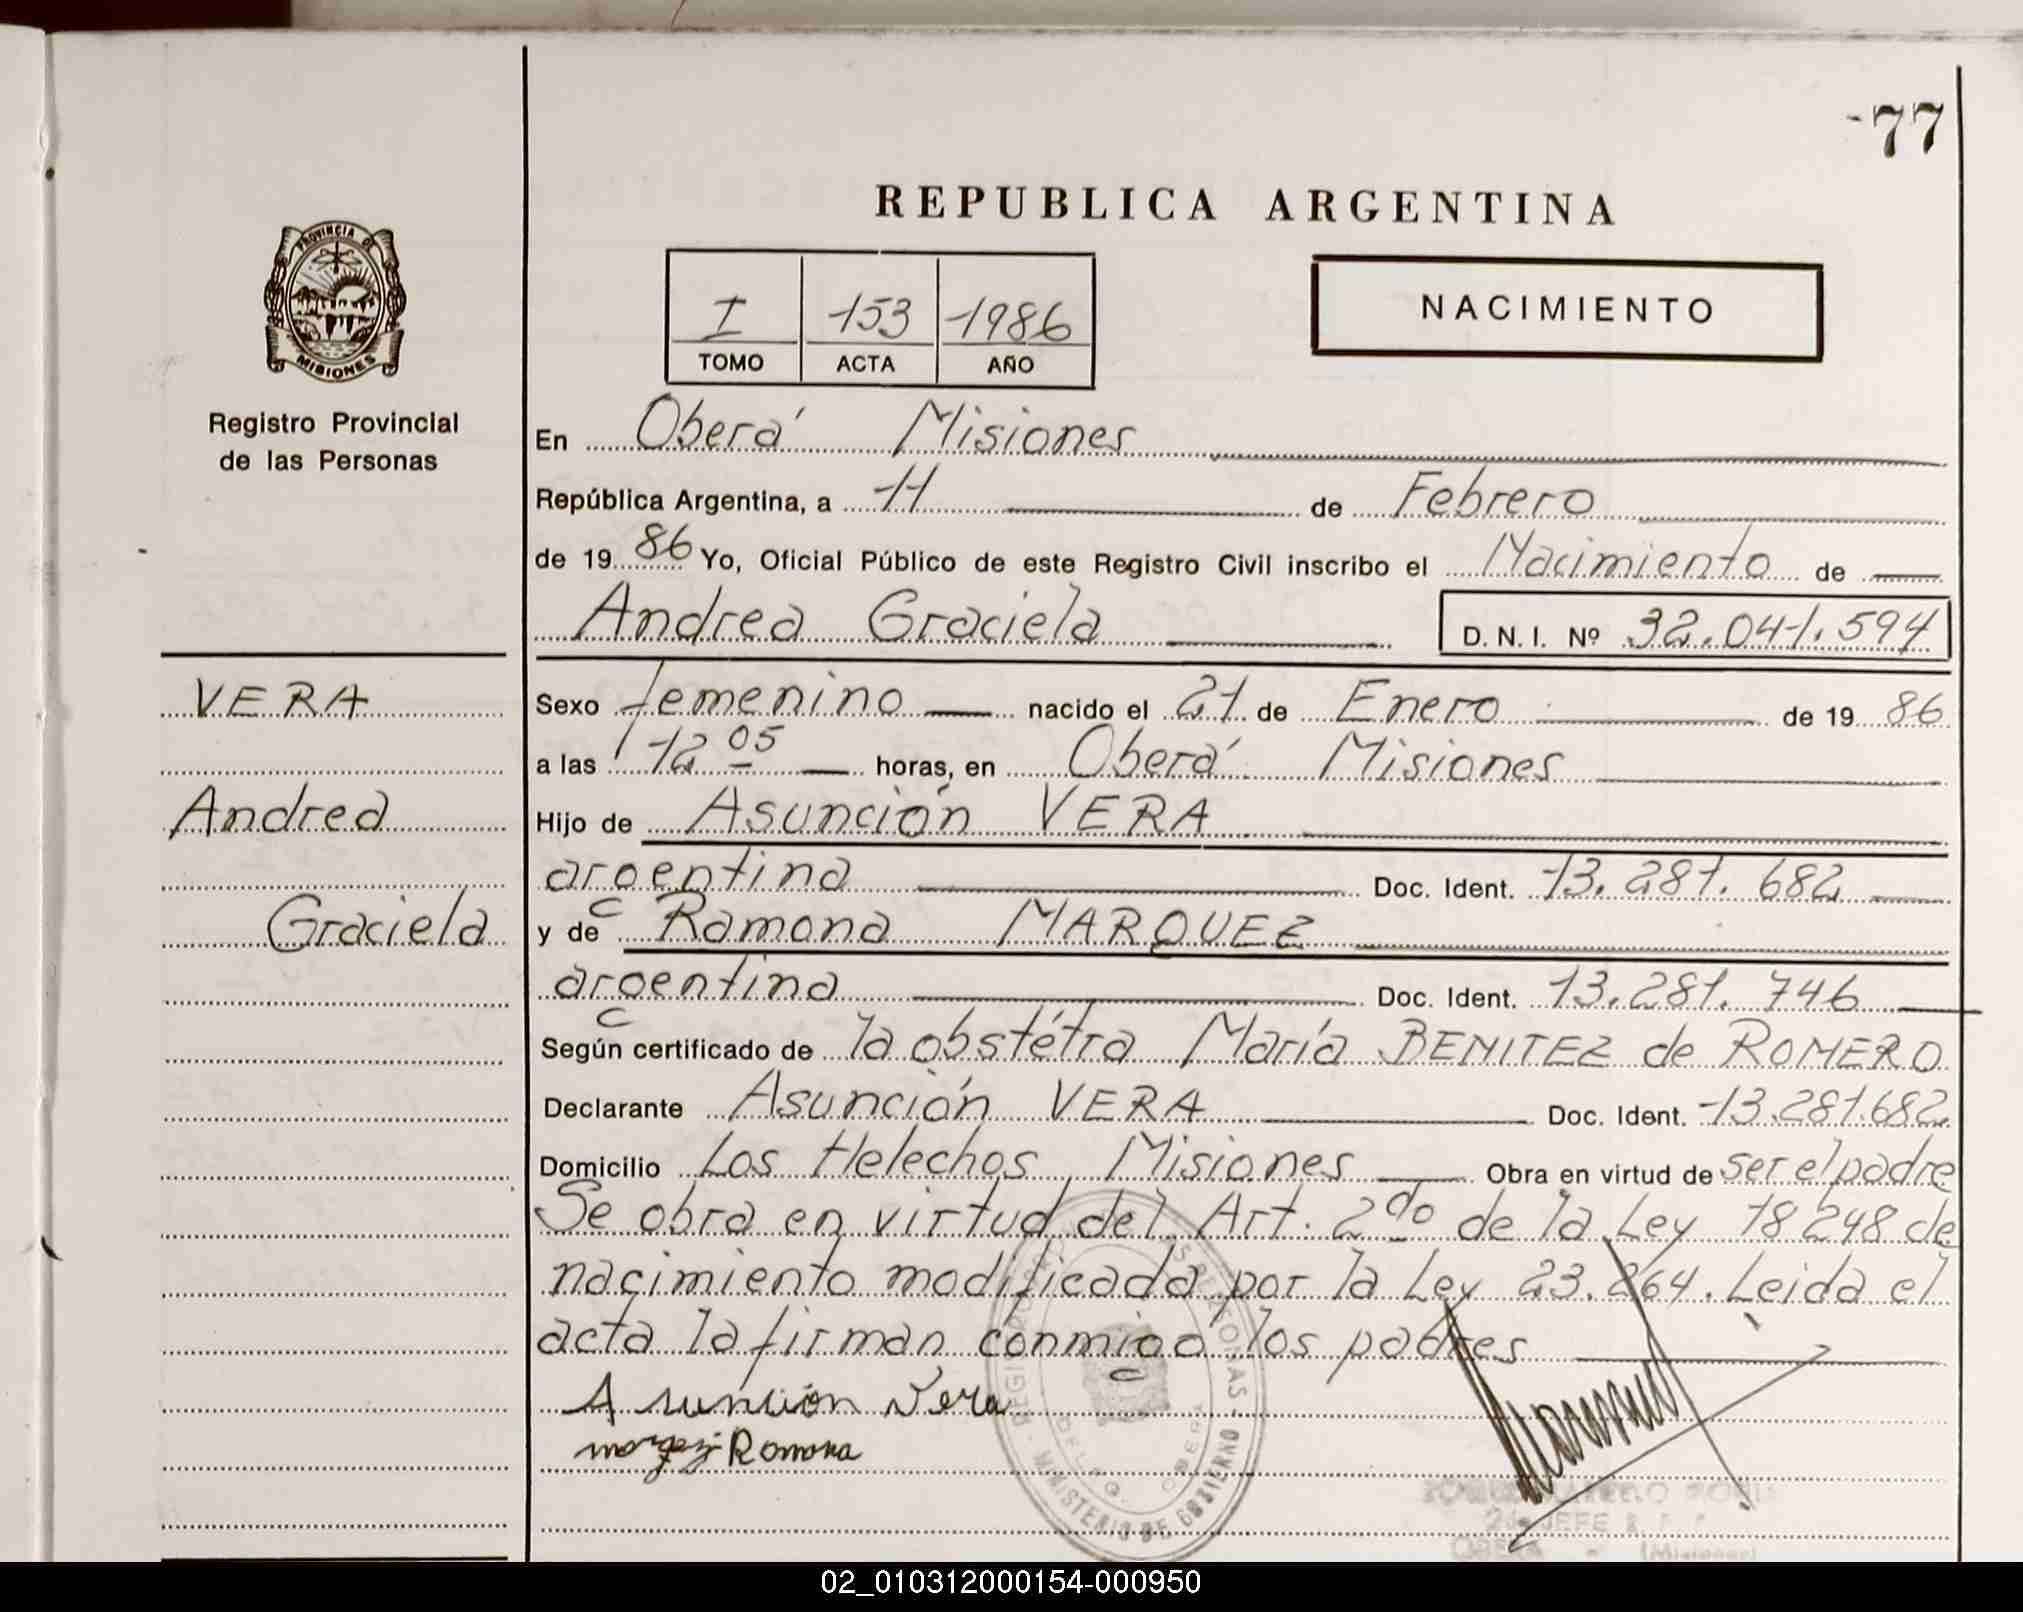 -77
REPUBLICA ARGENTINA
PROVINCIA DE
MISIONES
Registro Provincial
de las Personas
I 153 1986
TOMO ACTA AÑO
NACIMIENTO
En Oberá Misiones
República Argentina, a 11 de Febrero
de 19 86 Yo, Oficial Público de este Registro Civil inscribo el Nacimiento de
Andrea Graciela D. N. I. Nº 32.041.594
VERA
Andrea
Graciela
Sexo femenino nacido el 21 de Enero de 19 86
a las 12 05 horas, en Oberá Misiones
Hijo de Asunción VERA
argentina Doc. Ident. 13.281.682
y de Ramona MARQUEZ
argentina Doc. Ident. 13.281.746
Según certificado de la obstétra María BENITEZ de ROMERO
Declarante Asunción VERA Doc. Ident. 13.281.682
Domicilio Los Helechos Misiones Obra en virtud de ser el padre
Se obra en virtud del Art. 2do de la Ley 18248 de
nacimiento modificada por la Ley 23.264. Leida el
acta la firman conmigo los padres
Asunción Vera
Ramona
MINISTERIO DE GOBIERNO
DELEG. OBERA
JEFE
OBERA - (Misiones)
02_010312000154-000950